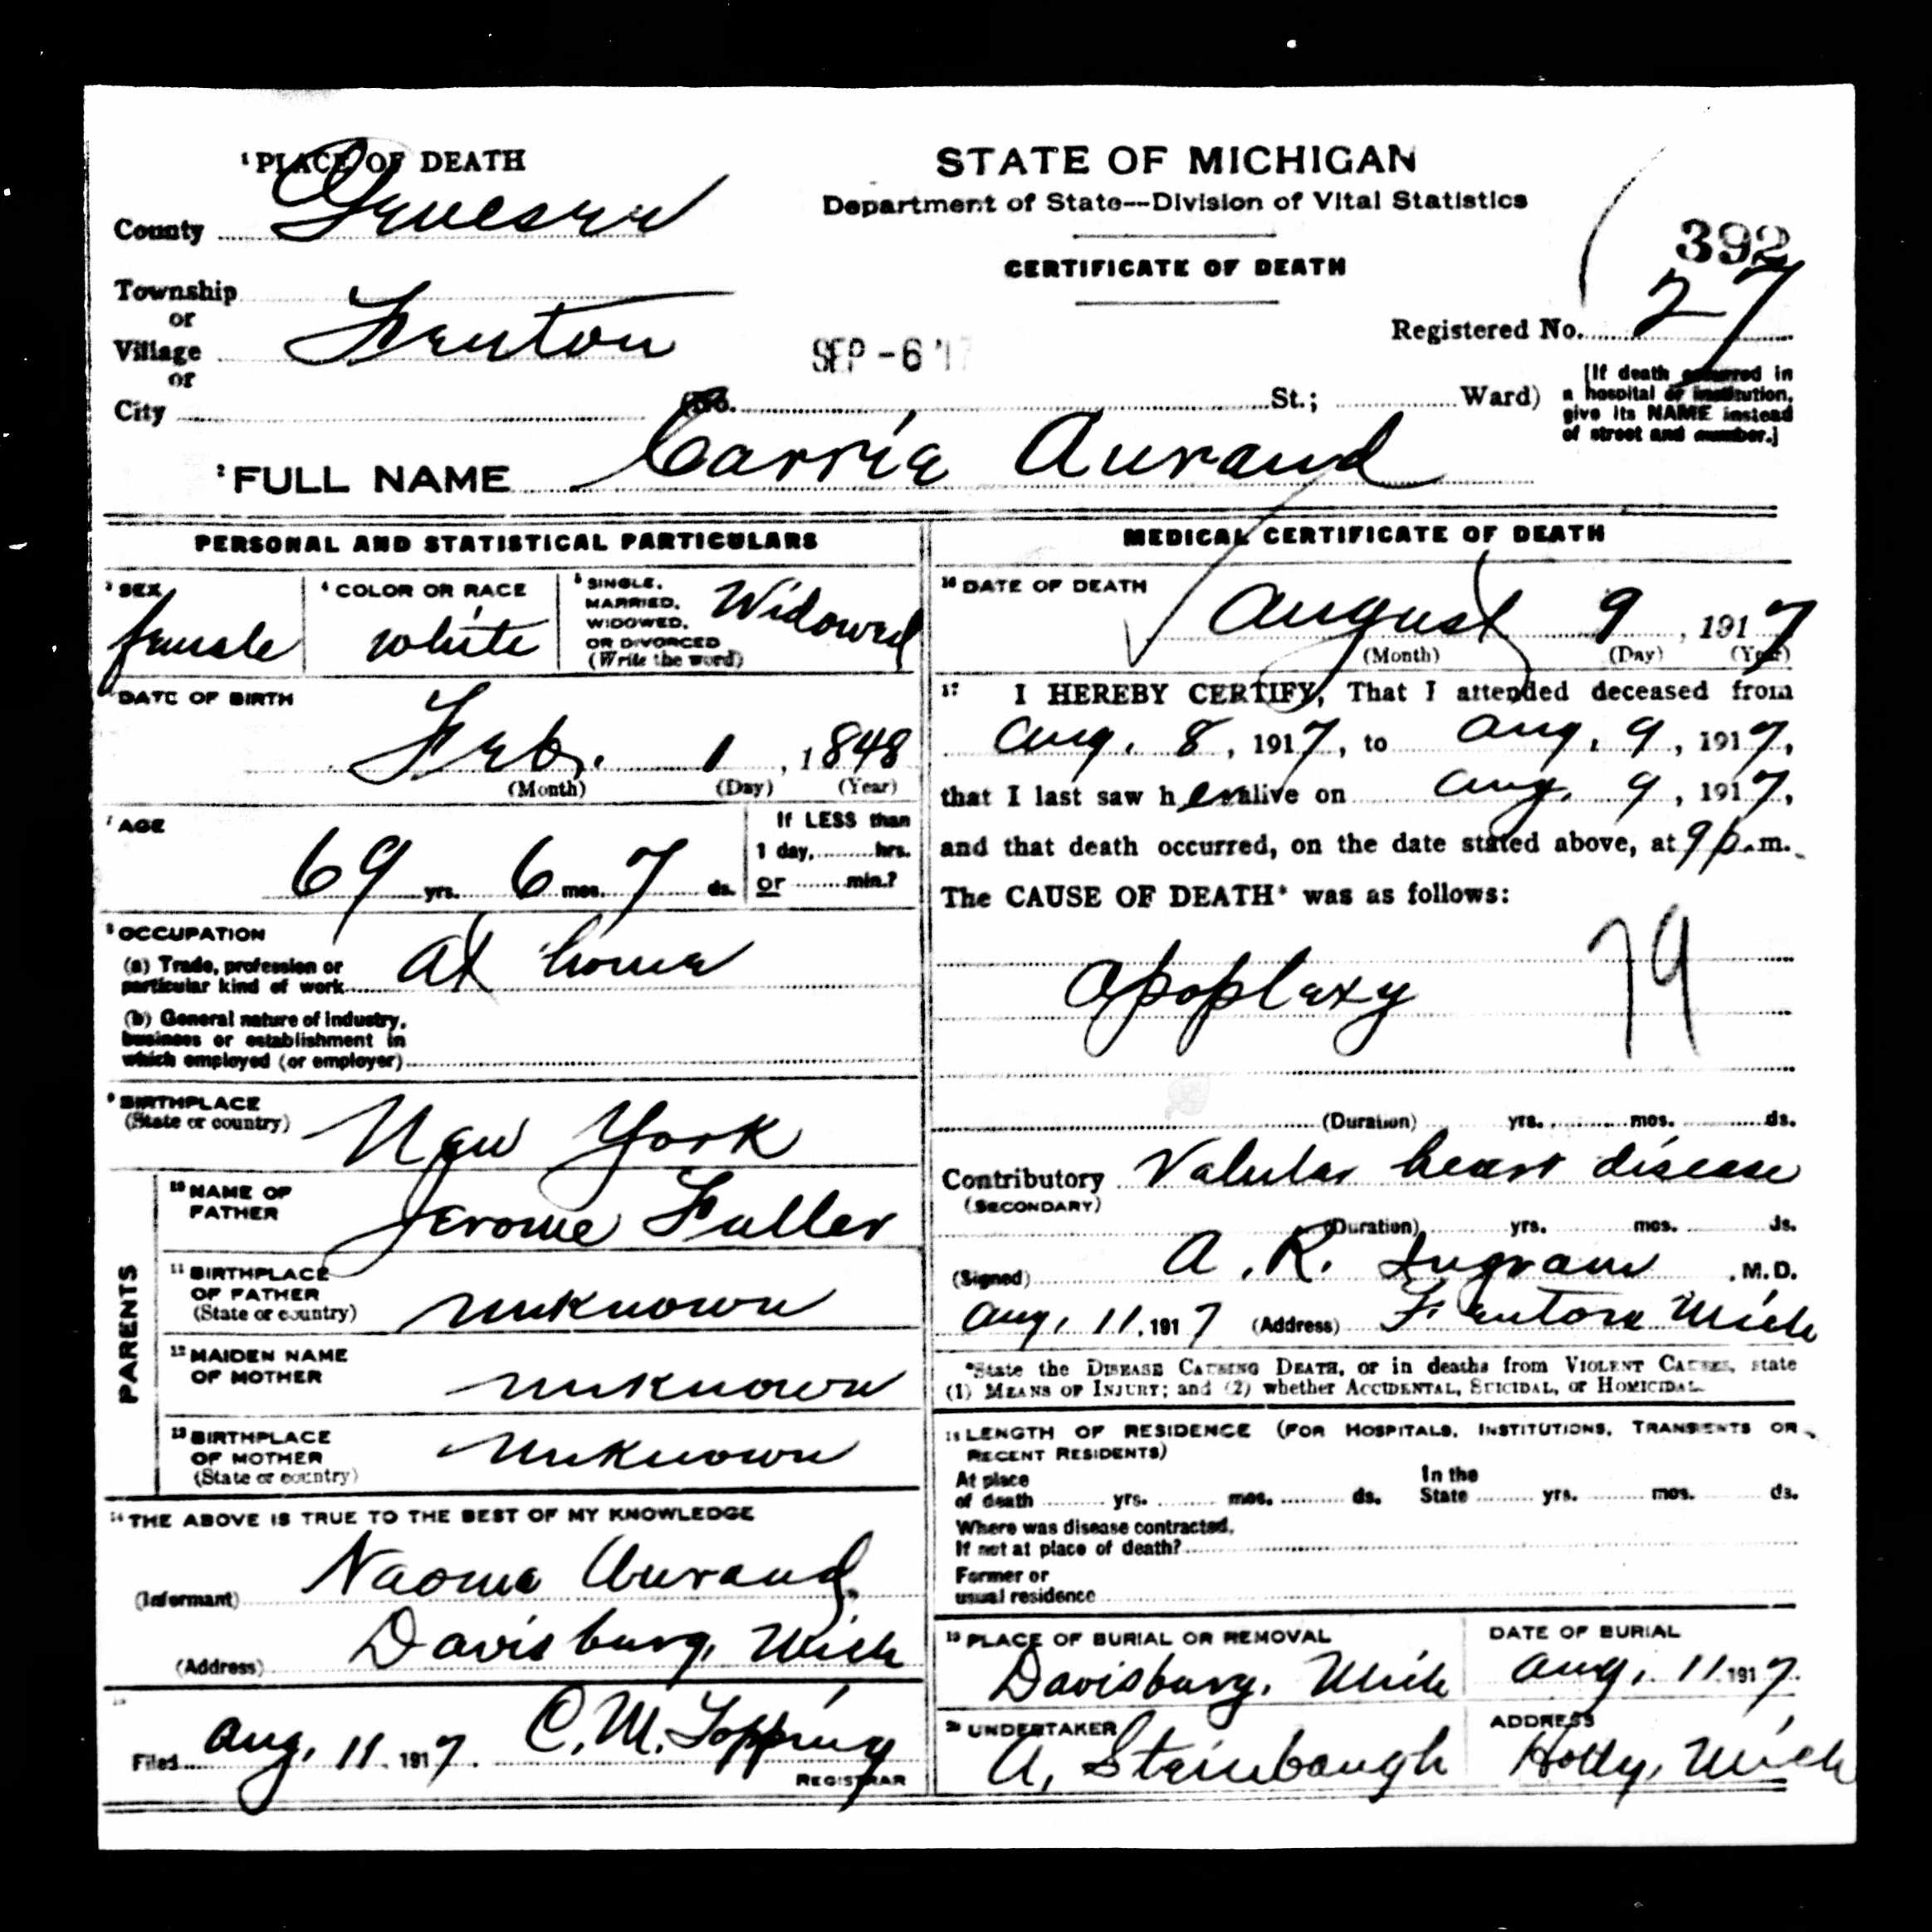 1 PLACE OF DEATH
County Genesee
Township
or
Village Fenton
or
City
STATE OF MICHIGAN
Department of State—Division of Vital Statistics
CERTIFICATE OF DEATH
392
SEP -6 '17
Registered No. 27
(No. St.; Ward)
[If death occurred in
a hospital or institution,
give its NAME instead
of street and number.]
2 FULL NAME Carrie Aurand
PERSONAL AND STATISTICAL PARTICULARS
3 SEX
female
4 COLOR OR RACE
white
5 SINGLE,
MARRIED,
WIDOWED,
OR DIVORCED
(Write the word)
Widowed
6 DATE OF BIRTH
Feb. 1, 1848
(Month) (Day) (Year)
7 AGE
69 yrs. 6 mos. 7 ds.
If LESS than
1 day, hrs.
or min.?
8 OCCUPATION
(a) Trade, profession or
particular kind of work At home
(b) General nature of industry,
business or establishment in
which employed (or employer)
9 BIRTHPLACE
(State or country) New York
PARENTS
10 NAME OF
FATHER Jerome Fuller
11 BIRTHPLACE
OF FATHER
(State or country) unknown
12 MAIDEN NAME
OF MOTHER unknown
13 BIRTHPLACE
OF MOTHER
(State or country) unknown
14 THE ABOVE IS TRUE TO THE BEST OF MY KNOWLEDGE
(Informant) Naoma Aurand
(Address) Davisburg, Mich
15
Filed Aug. 11, 1917. C. M. Topping
REGISTRAR
MEDICAL CERTIFICATE OF DEATH
16 DATE OF DEATH
August 9, 1917
(Month) (Day) (Year)
17 I HEREBY CERTIFY, That I attended deceased from
Aug. 8, 1917, to Aug. 9, 1917,
that I last saw her alive on Aug. 9, 1917,
and that death occurred, on the date stated above, at 9 p.m.
The CAUSE OF DEATH* was as follows:
Apoplexy 79
(Duration) yrs. mos. ds.
Contributory Valular heart disease
(SECONDARY)
(Duration) yrs. mos. ds.
(Signed) A. R. Ingram, M.D.
Aug. 11, 1917 (Address) Fenton Mich
*State the DISEASE CAUSING DEATH, or in deaths from VIOLENT CAUSES, state
(1) MEANS OF INJURY; and (2) whether ACCIDENTAL, SUICIDAL, or HOMICIDAL.
18 LENGTH OF RESIDENCE (FOR HOSPITALS, INSTITUTIONS, TRANSIENTS OR
RECENT RESIDENTS)
At place
of death yrs. mos. ds.
In the
State yrs. mos. ds.
Where was disease contracted,
If not at place of death?
Former or
usual residence
19 PLACE OF BURIAL OR REMOVAL
Davisburg, Mich
DATE OF BURIAL
Aug. 11, 1917.
20 UNDERTAKER
A. Steinbaugh
ADDRESS
Holly, Mich